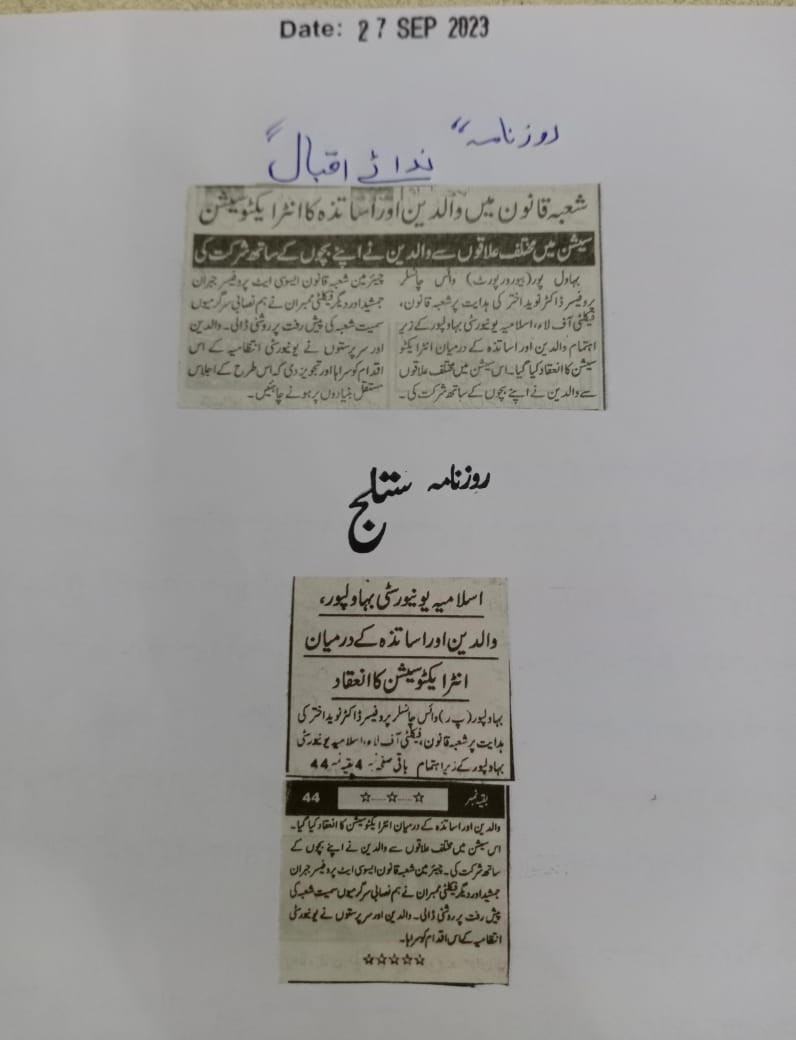 Date: 27 SEP 2023
روزنامہ "ندائے اقبال"
شعبہ قانون میں والدین اور اساتذہ کا انٹرایکٹو سیشن
سیشن میں مختلف علاقوں سے والدین نے اپنے بچوں کے ساتھ شرکت کی
بہاول پور (بیورورپورٹ) وائس چانسلر
پروفیسر ڈاکٹر نوید اختر کی ہدایت پر شعبہ قانون،
فیکلٹی آف لاء، اسلامیہ یونیورسٹی بہاولپور کے زیر
اہتمام والدین اور اساتذہ کے درمیان انٹرایکٹو
سیشن کا انعقاد کیا گیا۔ اس سیشن میں مختلف علاقوں
سے والدین نے اپنے بچوں کے ساتھ شرکت کی۔
چیئرمین شعبہ قانون ایسوسی ایٹ پروفیسر جبران
جمشید اور دیگر فیکلٹی ممبران نے ہم نصابی سرگرمیوں
سمیت شعبہ کی پیش رفت پر روشنی ڈالی۔ والدین
اور سرپرستوں نے یونیورسٹی انتظامیہ کے اس
اقدام کو سراہا اور تجویز دی کہ اس طرح کے اجلاس
مستقل بنیادوں پر ہونے چاہئیں۔
روزنامہ ستلج
اسلامیہ یونیورسٹی بہاولپور،
والدین اور اساتذہ کے درمیان
انٹرایکٹو سیشن کا انعقاد
بہاولپور (پ ر) وائس چانسلر پروفیسر ڈاکٹر نوید اختر کی
ہدایت پر شعبہ قانون، فیکلٹی آف لاء، اسلامیہ یونیورسٹی
بہاولپور کے زیر اہتمام باقی صفحہ نمبر 4 بقیہ نمبر 44
بقیہ نمبر ☆....☆....☆ 44
والدین اور اساتذہ کے درمیان انٹرایکٹو سیشن کا انعقاد کیا گیا۔
اس سیشن میں مختلف علاقوں سے والدین نے اپنے بچوں کے
ساتھ شرکت کی۔ چیئرمین شعبہ قانون ایسوسی ایٹ پروفیسر جبران
جمشید اور دیگر فیکلٹی ممبران نے ہم نصابی سرگرمیوں سمیت شعبہ کی
پیش رفت پر روشنی ڈالی۔ والدین اور سرپرستوں نے یونیورسٹی
انتظامیہ کے اس اقدام کو سراہا۔
☆☆☆☆☆